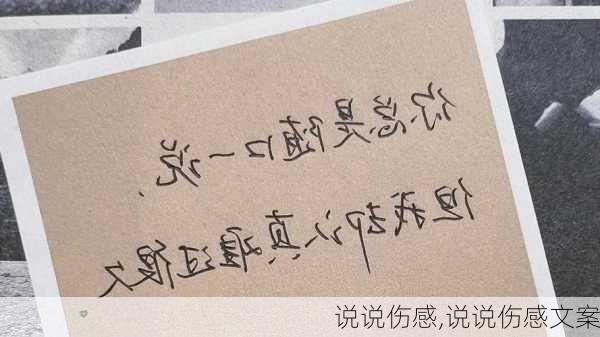 你总是随口一说.
但我却认真难过很久
说说伤感,说说伤感文案